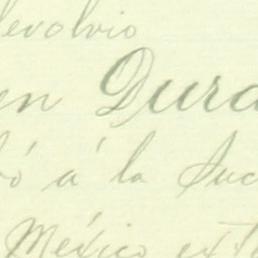 devolvio
en Dura
bó á la Suc
México ext